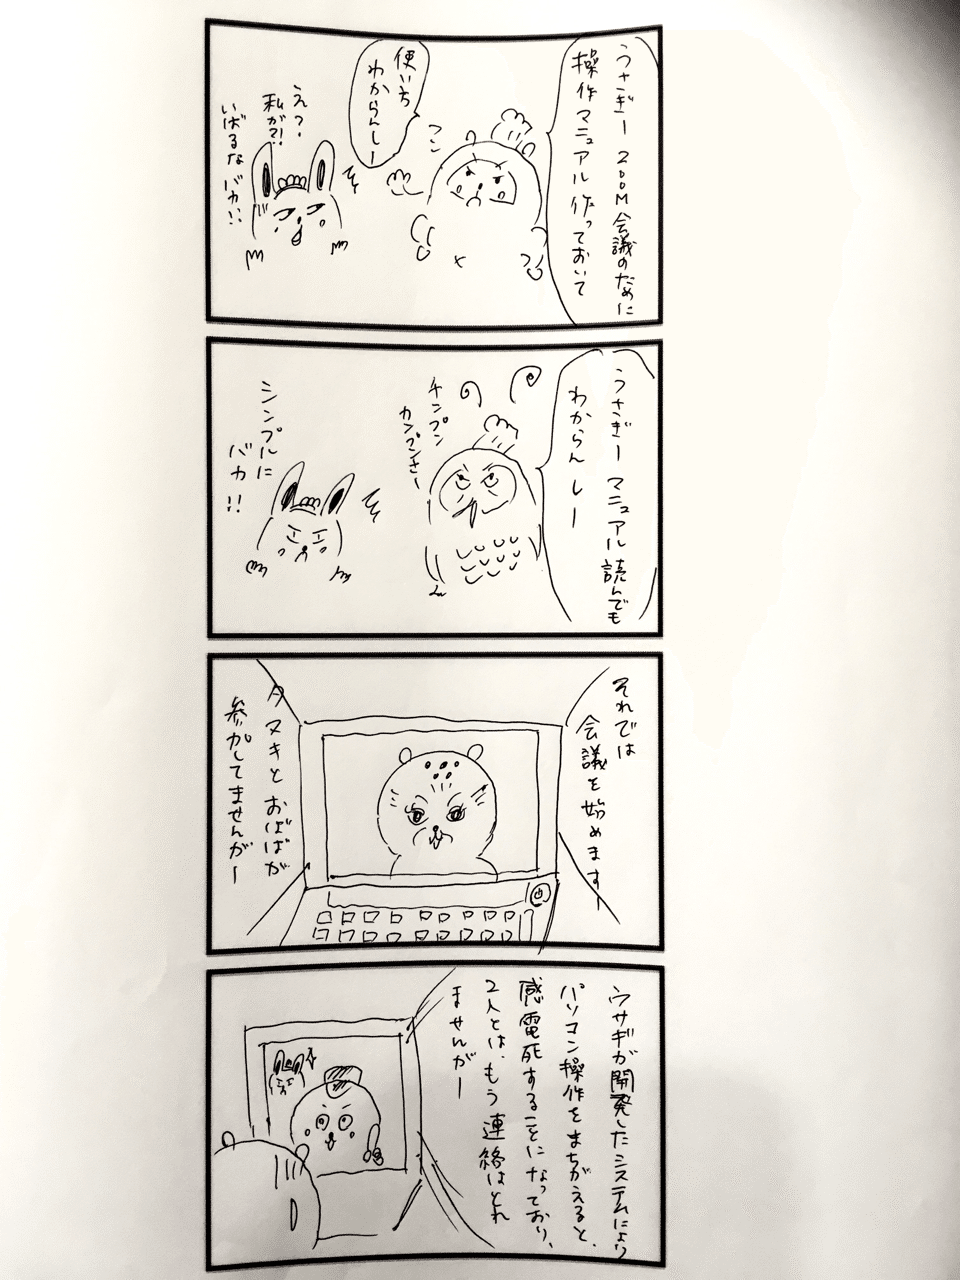 うさぎー ZOOM会議のために
操作マニュアル作っておいて
使い方
わからんしー
え?
私が?!
いばるな バカ!!
うさぎー マニュアル読んでも
わからんしー
チンプン
カンプンさー
シンプルに
バカ!!
それでは
会議を始めますー
タヌキとおばばが
参加してませんがー
ウサギが開発したシステムにより
パソコン操作をまちがえると、
感電死することになっており、
2人とは、もう連絡はとれ
ませんがー